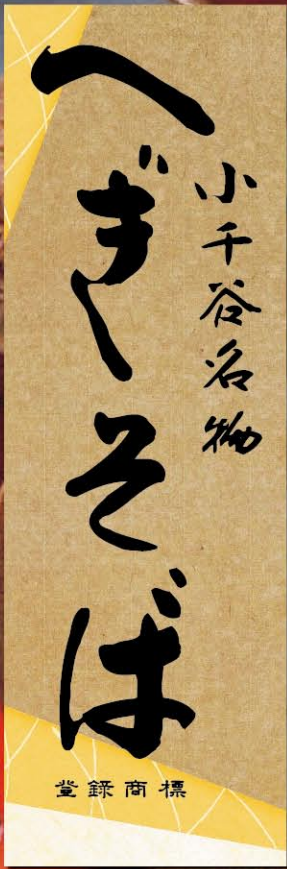 小千谷名物
へぎそば
登録商標